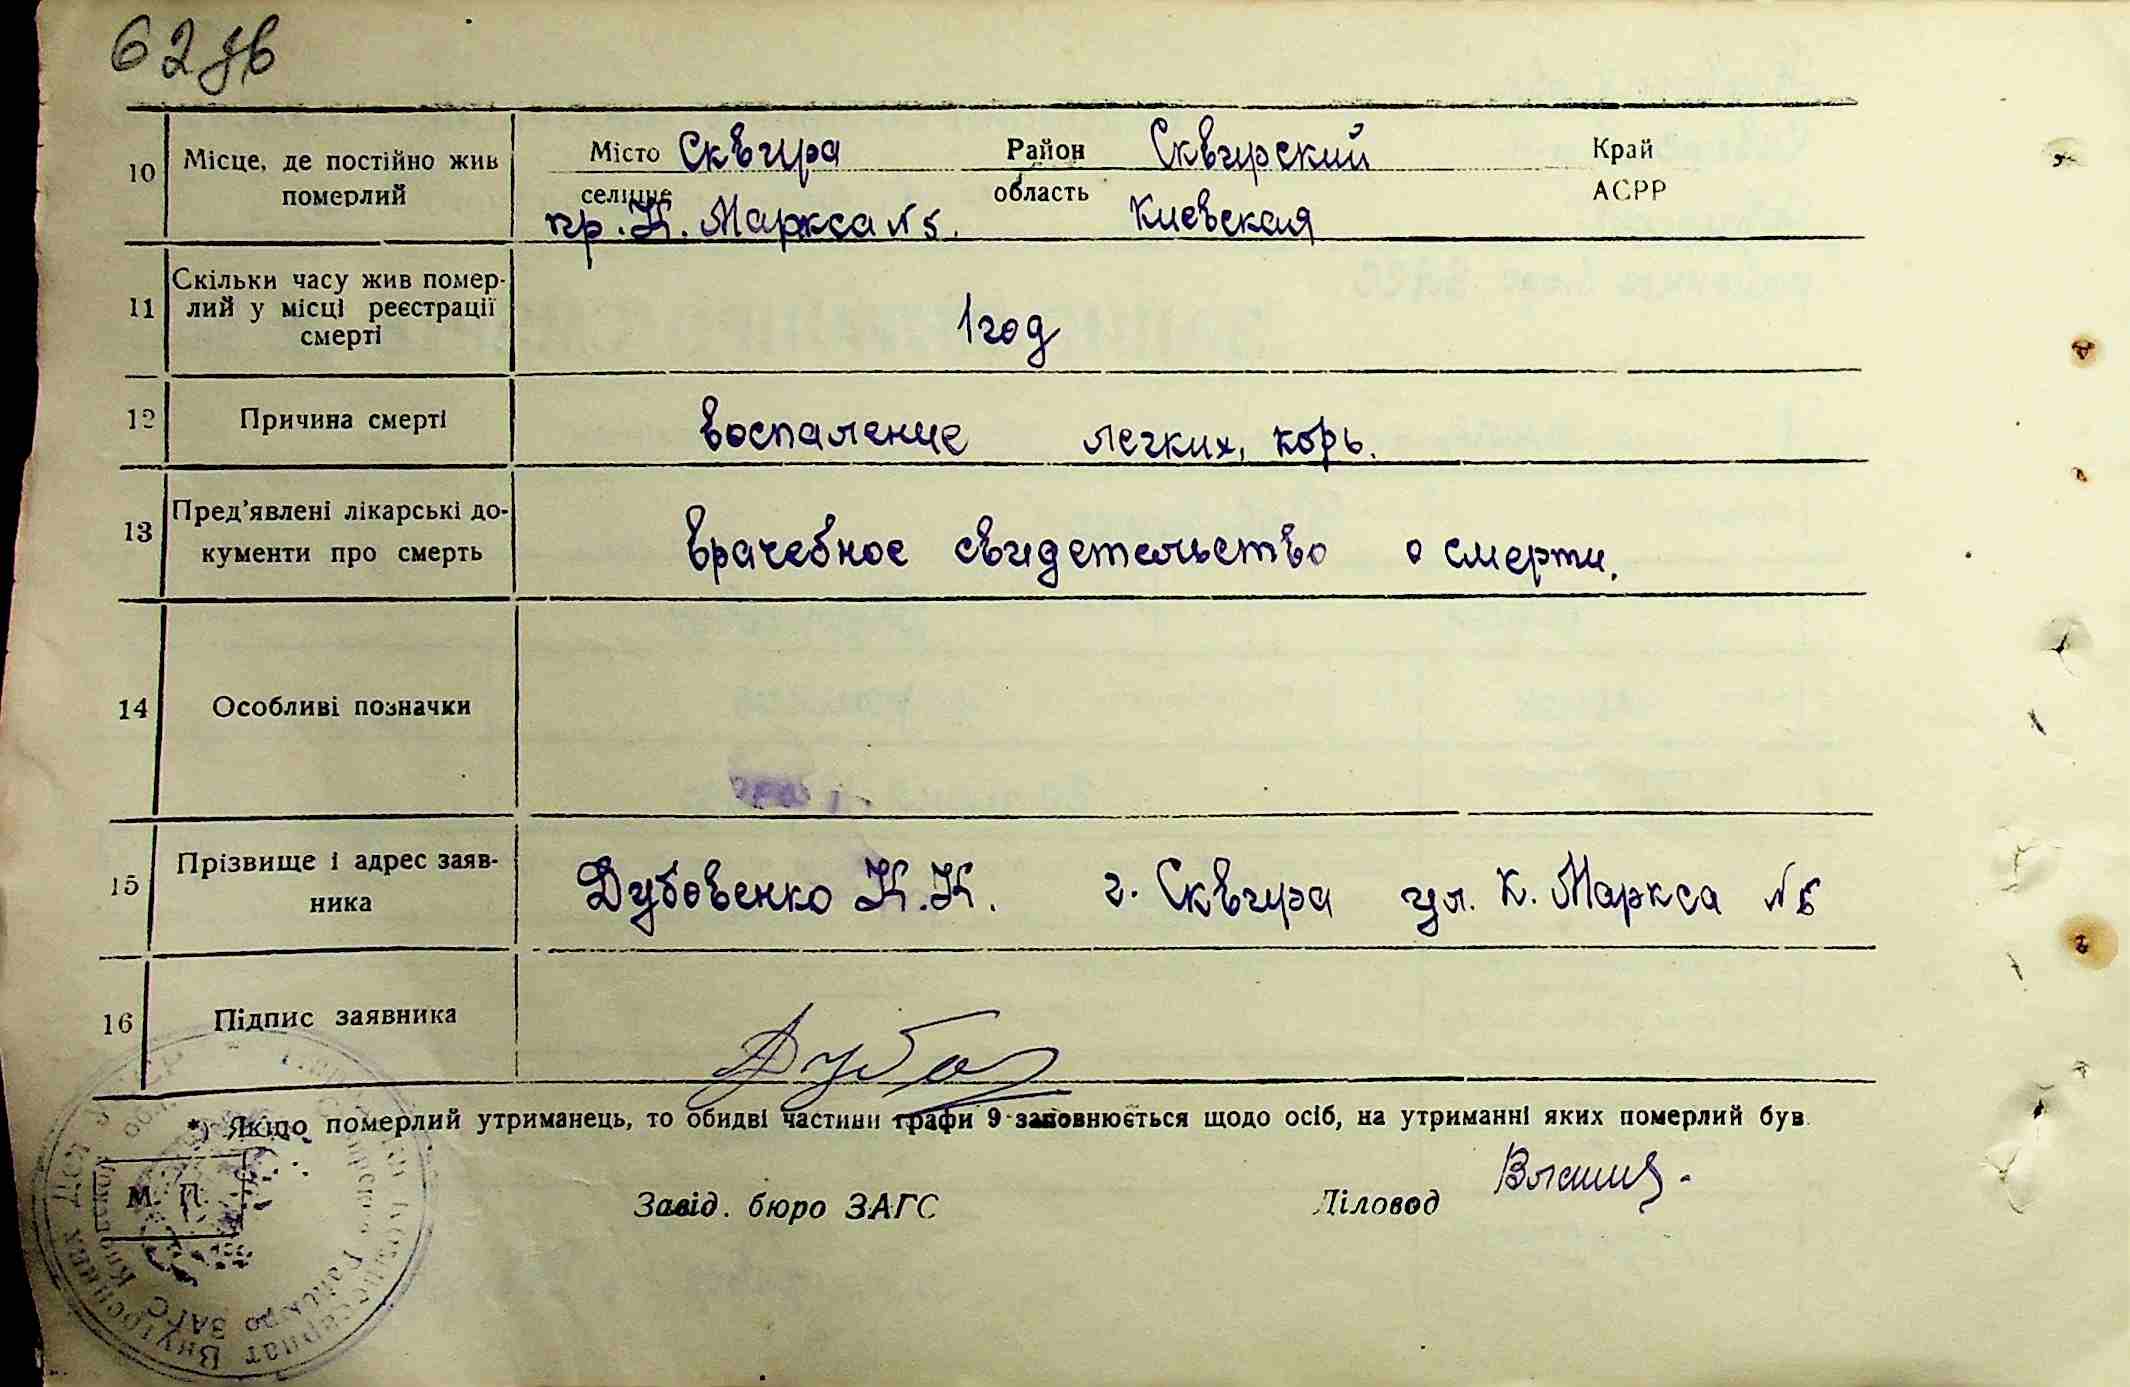 62 зв
10 Місце, де постійно жив Місто Сквира Район Сквирский Край
померлий селище область АСРР
пр. К. Маркса № 5. Киевская
Скільки часу жив помер-
11 лий у місці реєстрації 1 год
смерті
12 Причина смерті воспаление легких, корь.
13 Пред'явлені лікарські до- врачебное свидетельство о смерти.
кументи про смерть
14 Особливі позначки
15 Прізвище і адрес заяв- Дубовенко К. К. г. Сквира ул. К. Маркса № 5
ника
16 Підпис заявника
*) Якщо померлий утриманець, то обидві частини графи 9 заповнюється щодо осіб, на утриманні яких померлий був
М. П. Завід. бюро ЗАГС Діловод